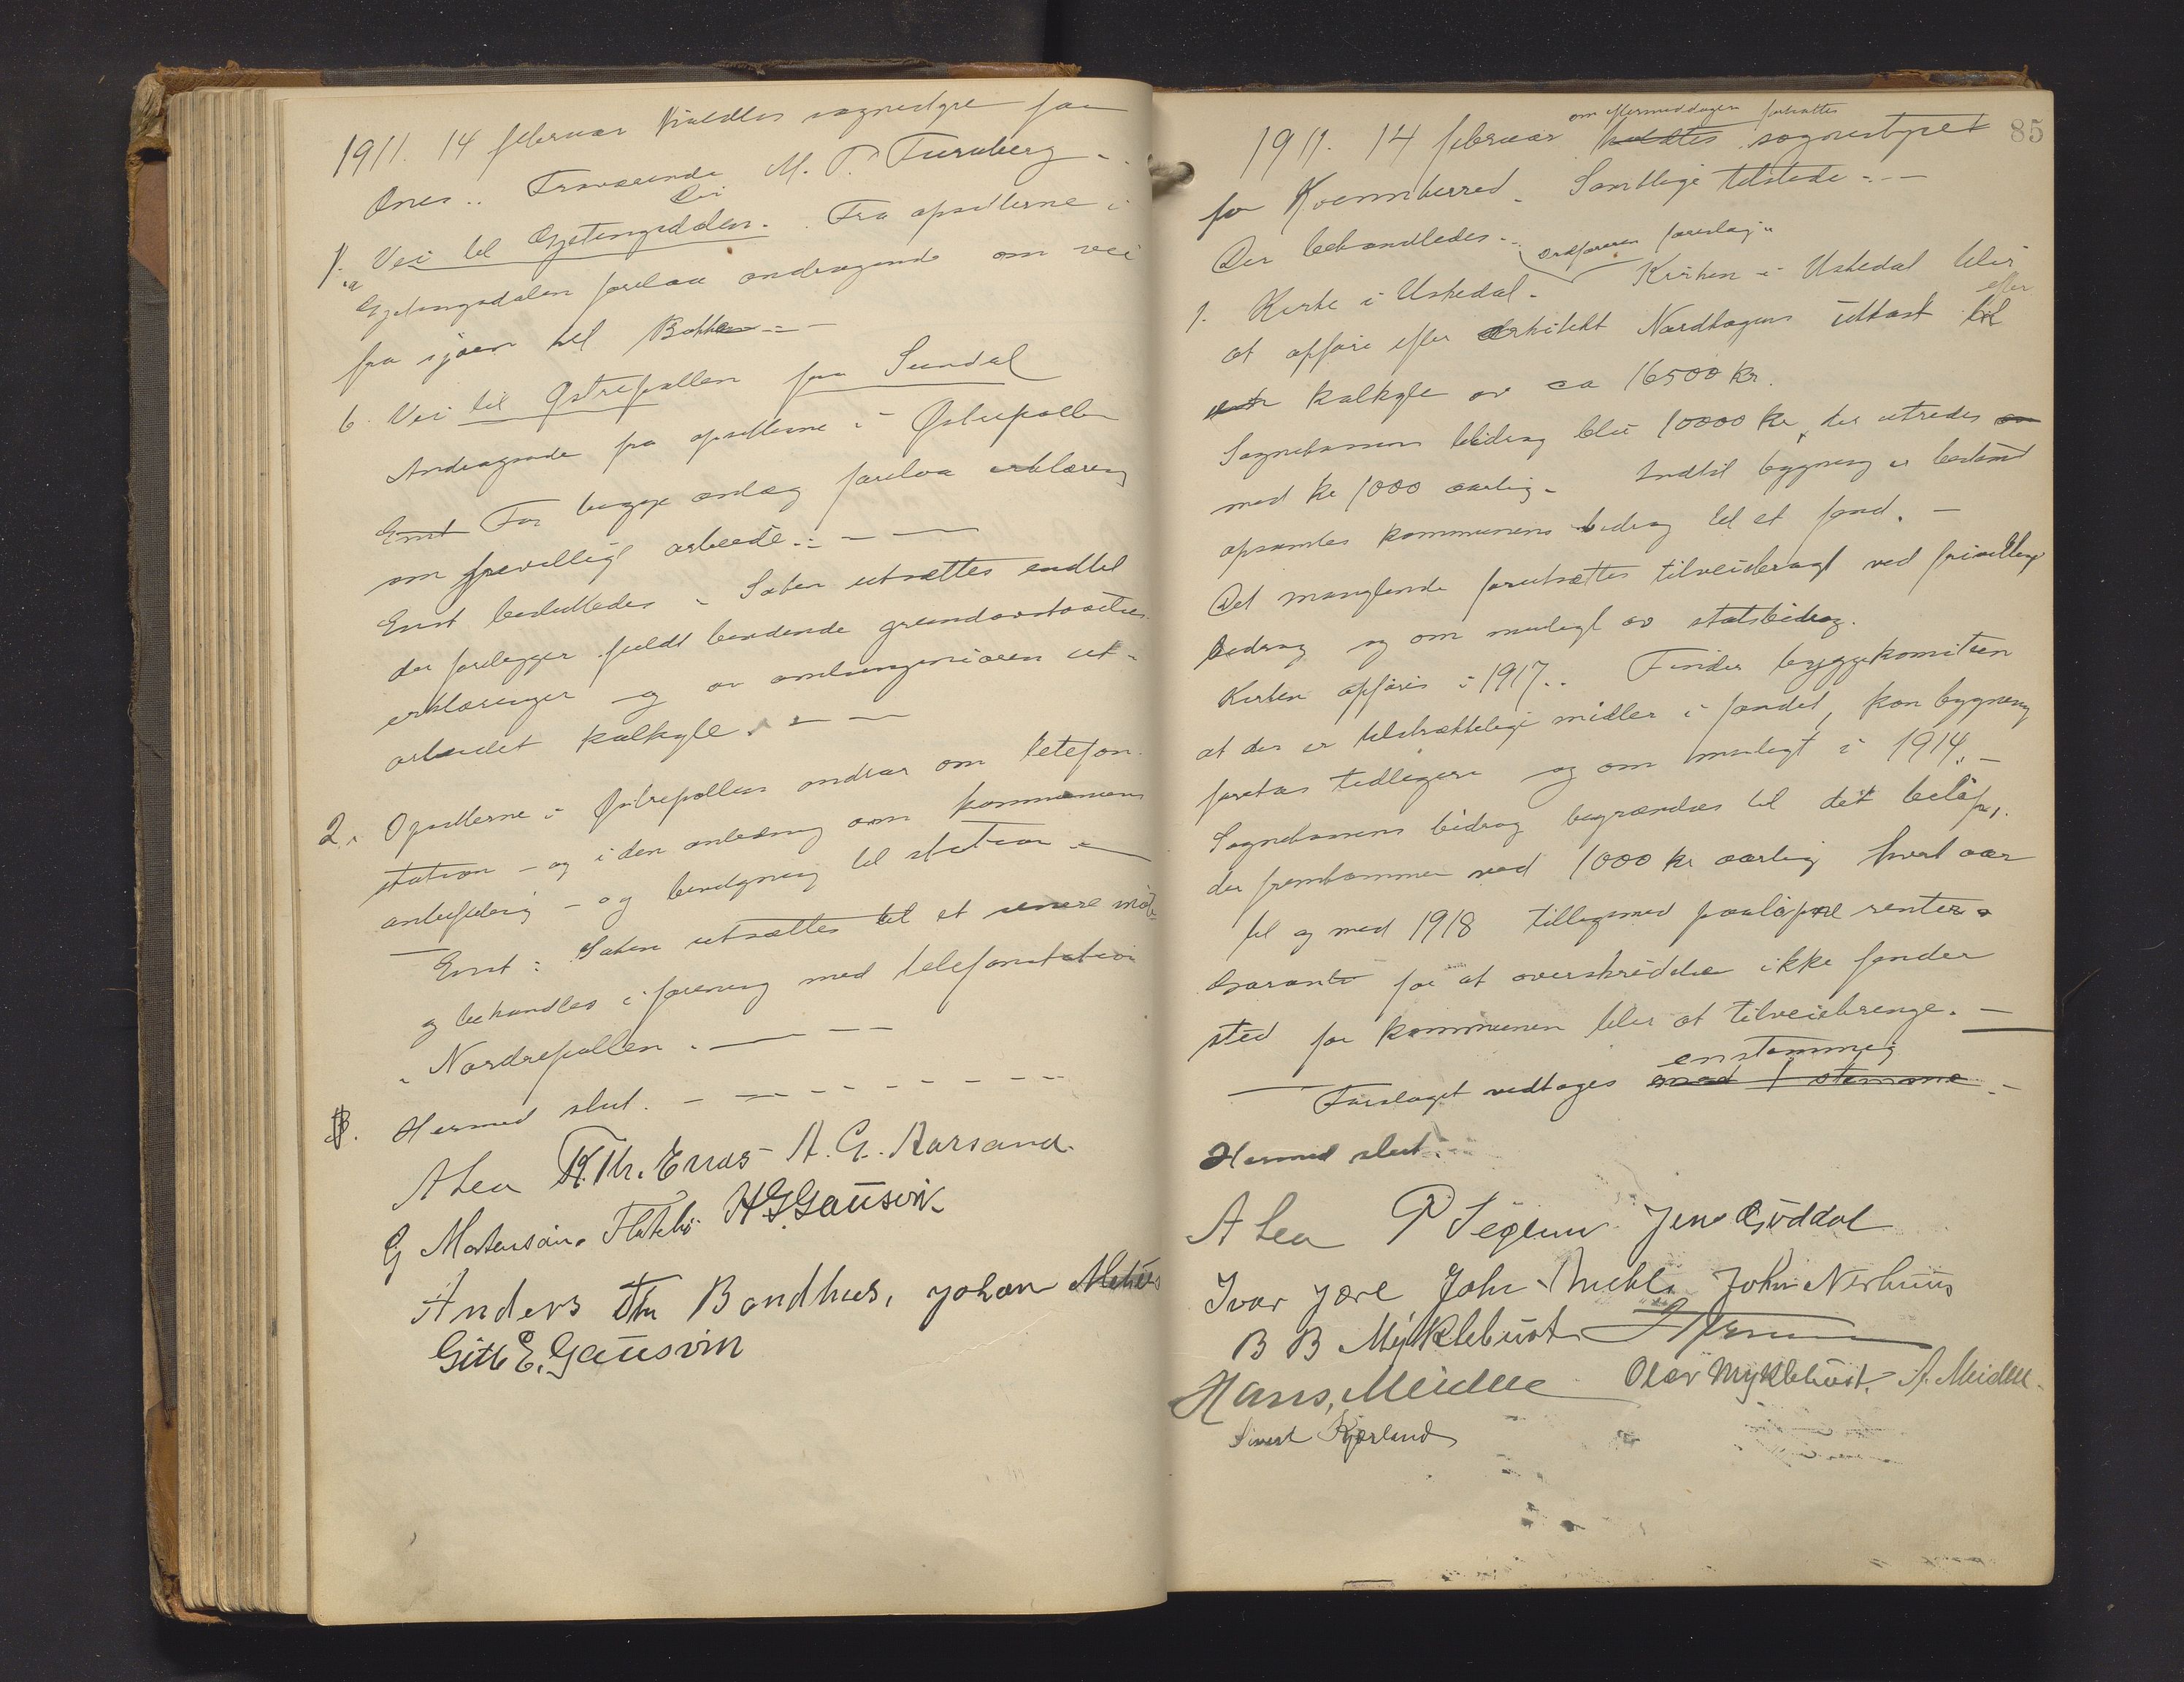 1911. 14 februar holdtes sognestyre for
Ænes.. Fraværende M. P. Furuberg -..
Vei
1. Vei til Gjetingsdalen. Fra opsitterne i
a
Gjetingsdalen forelaa andragende om vei
fra sjøen til Bakke -..-
b. Vei til Østrepollen fra Sundal
Andragende fra opsitterne i Østrepollen
Enst For begge anlæg forelaa erklæring
om frevillig arbeide -..- - -
Enst besluttedes - Saken utsættes indtil
der foreligger fuldt bindende grundavstaaelses
erklæringer og av amtsingeniøren ut-
arbeidet kalkyle. - - -
2. Opsitterne i Østrepollen andrar om telefon-
station - og i den anledning om kommunens
anbefaling - og bevilgning til station -
Enst: Saken utsættes til et senere møte
og behandles i forening med telefonstation
i Nordrepollen. - - -
3. Hermed slut. - - - - - - - -
A Lea K. Th. Enæs A. G. Aarsand
G Mortensen. Flatebø H G Gausvik
Anders Th Bondhus, Johan Mehus
Gitle E. Gausvin
85
om eftermiddagen fortsattes
1911. 14 februar holdtes sognestyret
for Kvinnherred. Samtlige tilstede -..-
Der behandledes -..
ordføreren foreslag:
1. Kirke i Uskedal - Kirken i Uskedal blir
efter
at opføre efter arkitekt Nordhagens utkast til
kalkyle av ca 16500 kr.
Sognekassens bidrag blir 10000 kr, der utredes
med kr 1000 aarlig - Indtil bygning er bestemt
opsamles kommunens bidrag til et fond. -
Det manglende forutsættes tilveiebragt ved frivillige
bidrag og om muligt av statsbidrag.
Kirken opføres i 1917.. Finder byggekomiteen
at der er tilstrækkelige midler i fondet, kan bygning
foretas tidligere og om muligt i 1914. -
Sognekassens bidrag begrændses til det beløp,
der fremkommer ved 1000 kr aarlig hvert aar
til og med 1918 tillegmed paaløpne renter.
Garanti for at overskridelse ikke finder
sted for kommunen blir at tilveiebringe. -
enstemmig
Forslaget vedtages med 1 stemme -
Hermed slut.
A Lea P Seglem Jens Guddal
Ivar Jere Johs Mehl John Nerhuus
B B Myklebust
Hans, Meidell Olav Myklebust. A. Meidell.
Sivert Kjærland